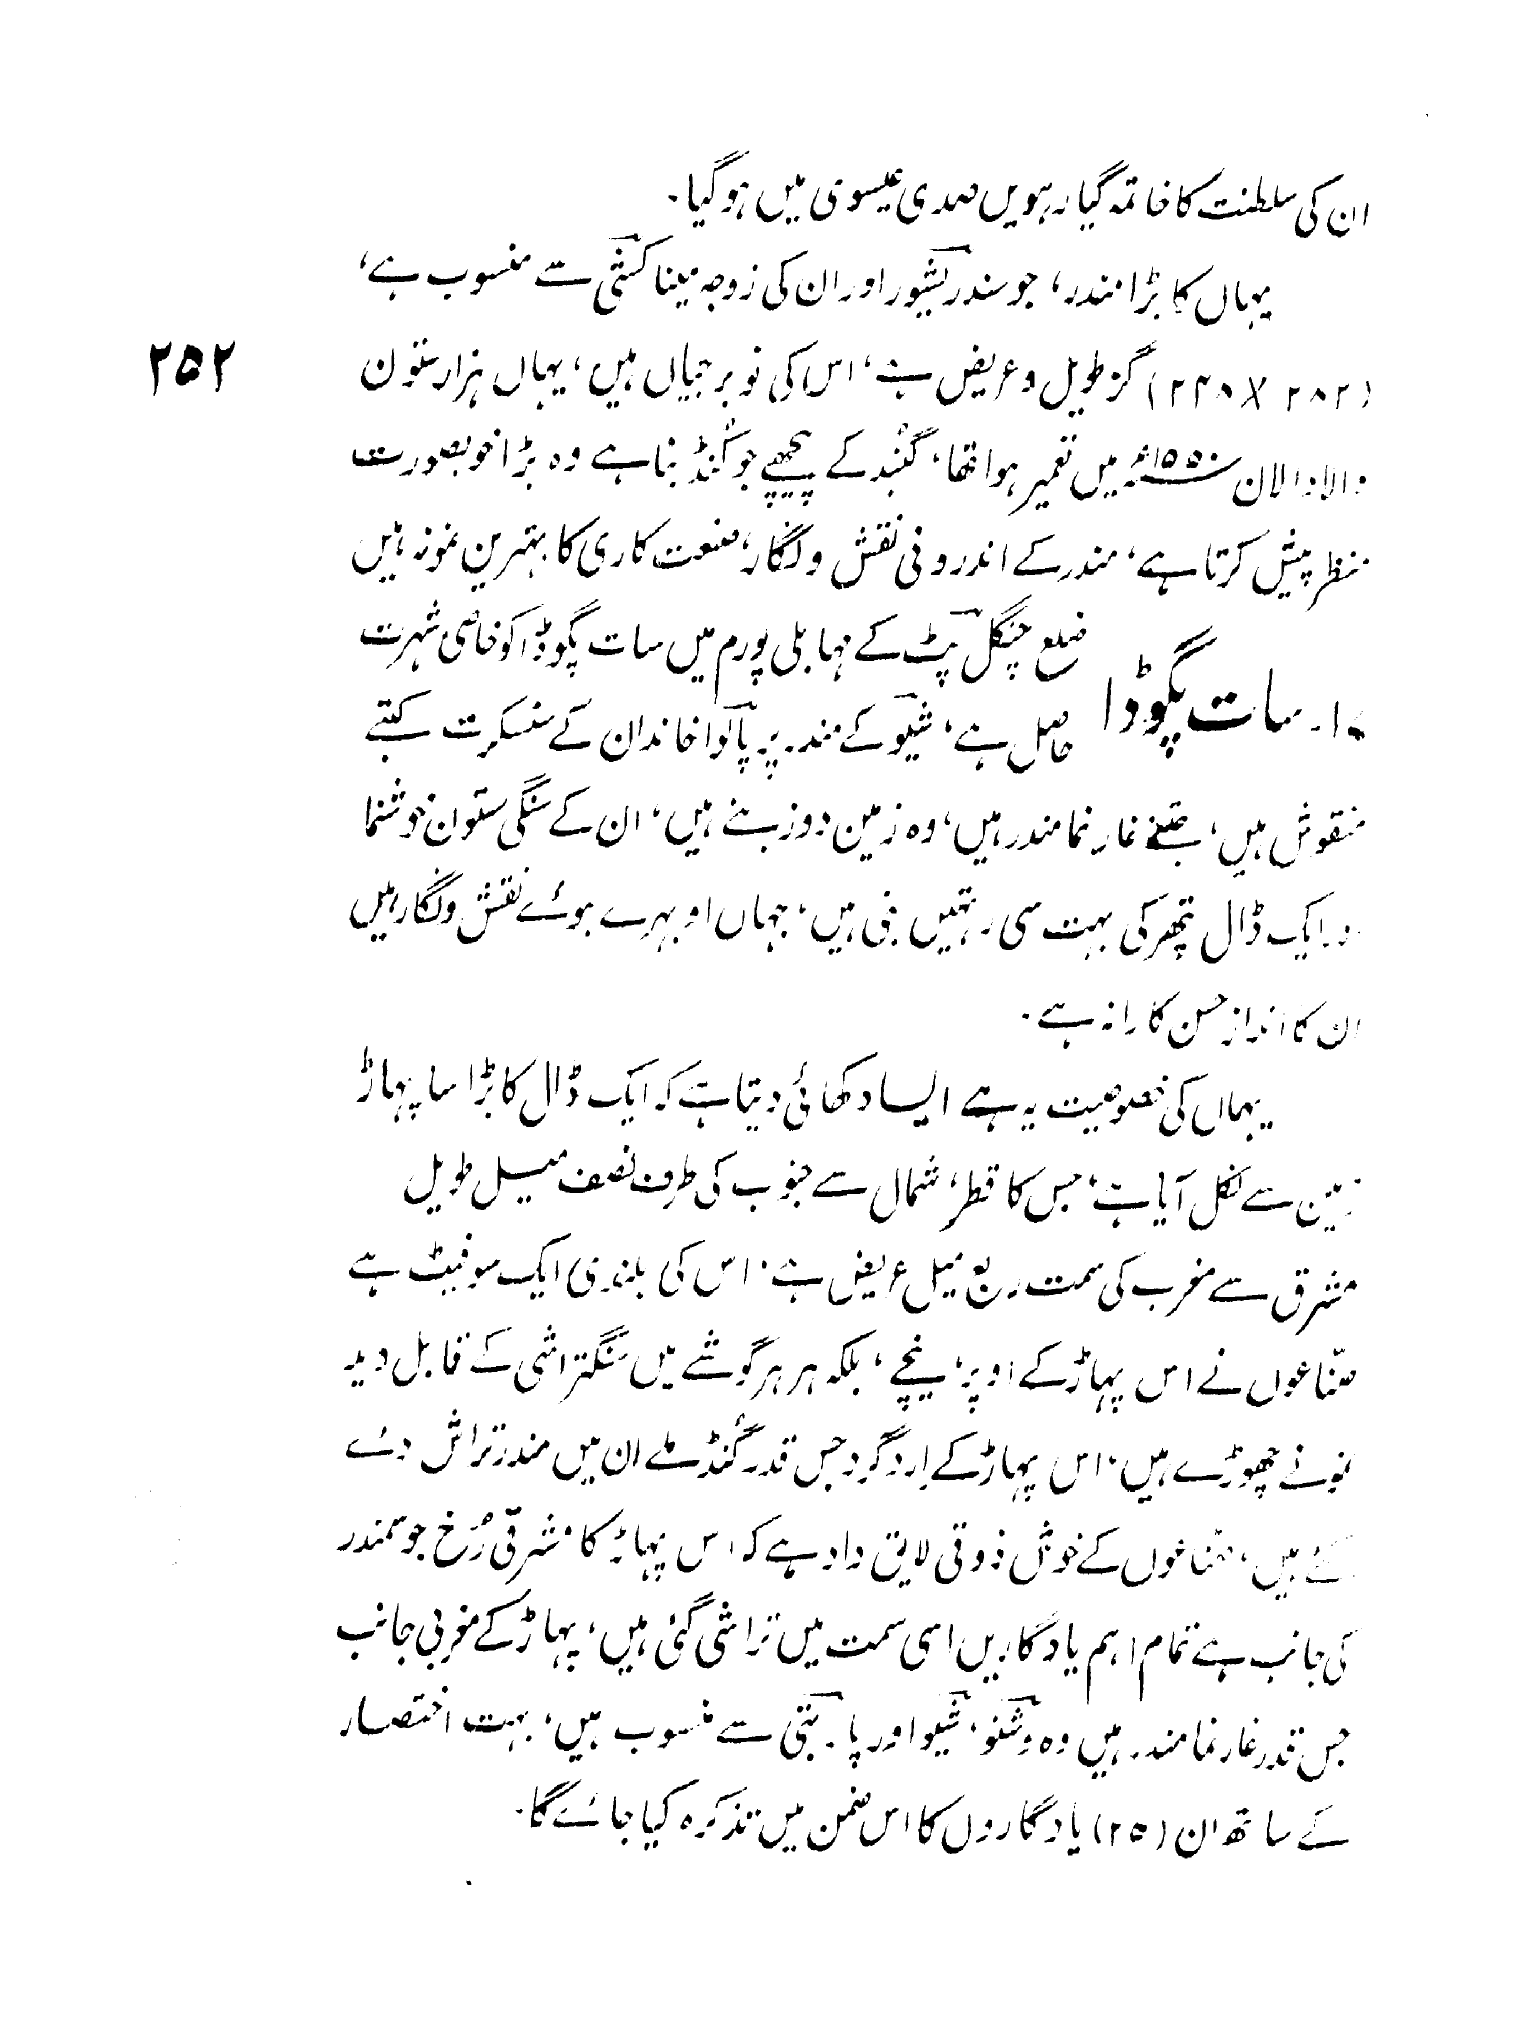 ان کی سلطنت کا خاتمہ گیارہویں صدی عیسوی میں ہوگیا۔
یہاں کا بڑا مندر، جو سندریشور اور ان کی زوجہ میناکشی سے منسوب ہے،
۲۵۲
(۲۸۲ × ۲۴۸) گز طویل و عریض ہے، اس کی نو برجیاں ہیں، یہاں ہزار ستون
والا دالان ۱۵۵۰ء میں تعمیر ہوا تھا، گنبد کے پیچھے جو کُنڈ بنا ہے وہ بڑا خوبصورت
منظر پیش کرتا ہے، مندر کے اندرونی نقش و نگار، صنعت کاری کا بہترین نمونہ ہیں
۱۰۔ سات پگوڈا
ضلع چنگل پٹ کے مہابلی پورم میں سات پگوڈا کو خاصی شہرت
حاصل ہے، شیو کے مندر پر پالوا خاندان کے سنسکرت کتبے
منقوش ہیں، جتنے غار نما مندر ہیں، وہ زمین دوز بنے ہیں، ان کے سنگی ستون خوشنما
اور ایک ڈال پتھر کی بہت سی رتھیں بنی ہیں، جہاں اوبھرے ہوئے نقش و نگار ہیں
ان کا انداز حسن کارانہ ہے۔
یہاں کی خصوصیت یہ ہے ایسا دکھائی دیتا ہے کہ ایک ڈال کا بڑا سا پہاڑ
زمین سے نکل آیا ہے، جس کا قطر، شمال سے جنوب کی طرف نصف میل طویل
مشرق سے مغرب کی سمت ربع میل عریض ہے۔ اس کی بلندی ایک سو فیٹ ہے
صنّاعوں نے اس پہاڑ کے اوپر، نیچے، بلکہ ہر ہر گوشے میں سنگتراشی کے قابل دید
نمونے چھوڑے ہیں۔ اس پہاڑ کے اِرد گرد جس قدر کُنڈ ملے ان میں مندر تراش دئے
گئے ہیں، صنّاعوں کے خوش ذوقی لایق داد ہے کہ اس پہاڑ کا مشرقی رُخ جو سمندر
کی جانب ہے تمام اہم یادگاریں اسی سمت میں تراشی گئی ہیں، پہاڑ کے مغربی جانب
جس قدر غار نما مندر ہیں وہ وشنو، شیو اور پاربتی سے منسوب ہیں، بہت اختصار
کے ساتھ ان (۲۵) یادگاروں کا اس ضمن میں تذکرہ کیا جائے گا۔